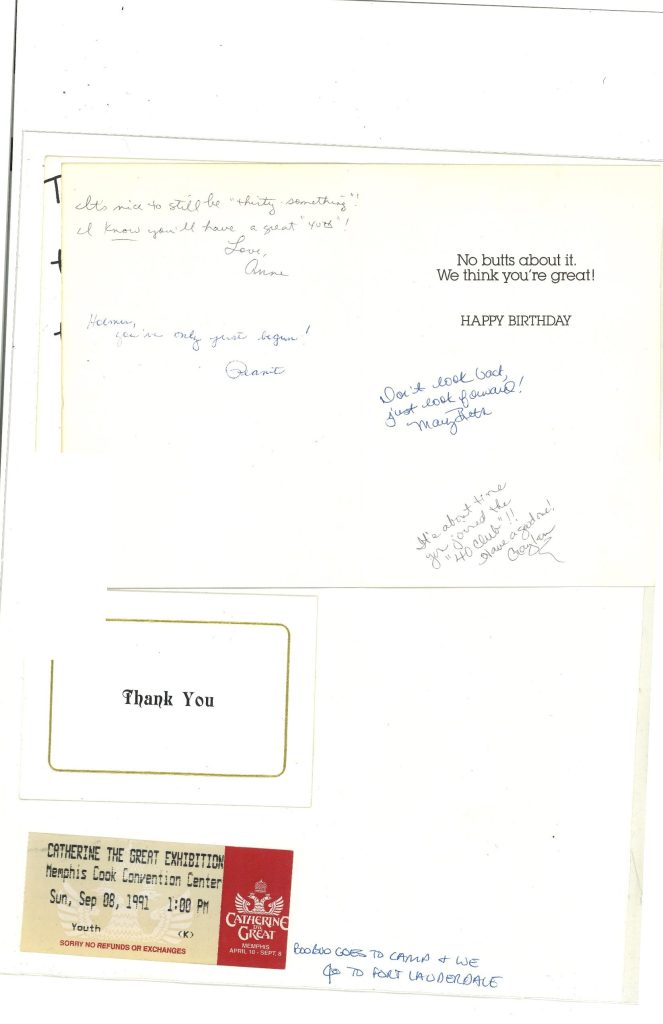 It's nice to still be "thirty-something"!
I know you'll have a great "40th"!
Love,
Anne
you've only just begun!
Grant
No butts about it.
We think you're great!
HAPPY BIRTHDAY
Don't look back,
just look forward!
Mary Beth
It's about time
you joined the
"40 Club"!!
Have a good one!
Thank You
CATHERINE THE GREAT EXHIBITION
Memphis Cook Convention Center
Sun, Sep 08, 1991 1:00 PM
Youth <K>
SORRY NO REFUNDS OR EXCHANGES
CATHERINE
THE
GREAT
MEMPHIS
APRIL 18 - SEPT. 8
BOOBOO GOES TO CAMP & WE
GO TO FORT LAUDERDALE